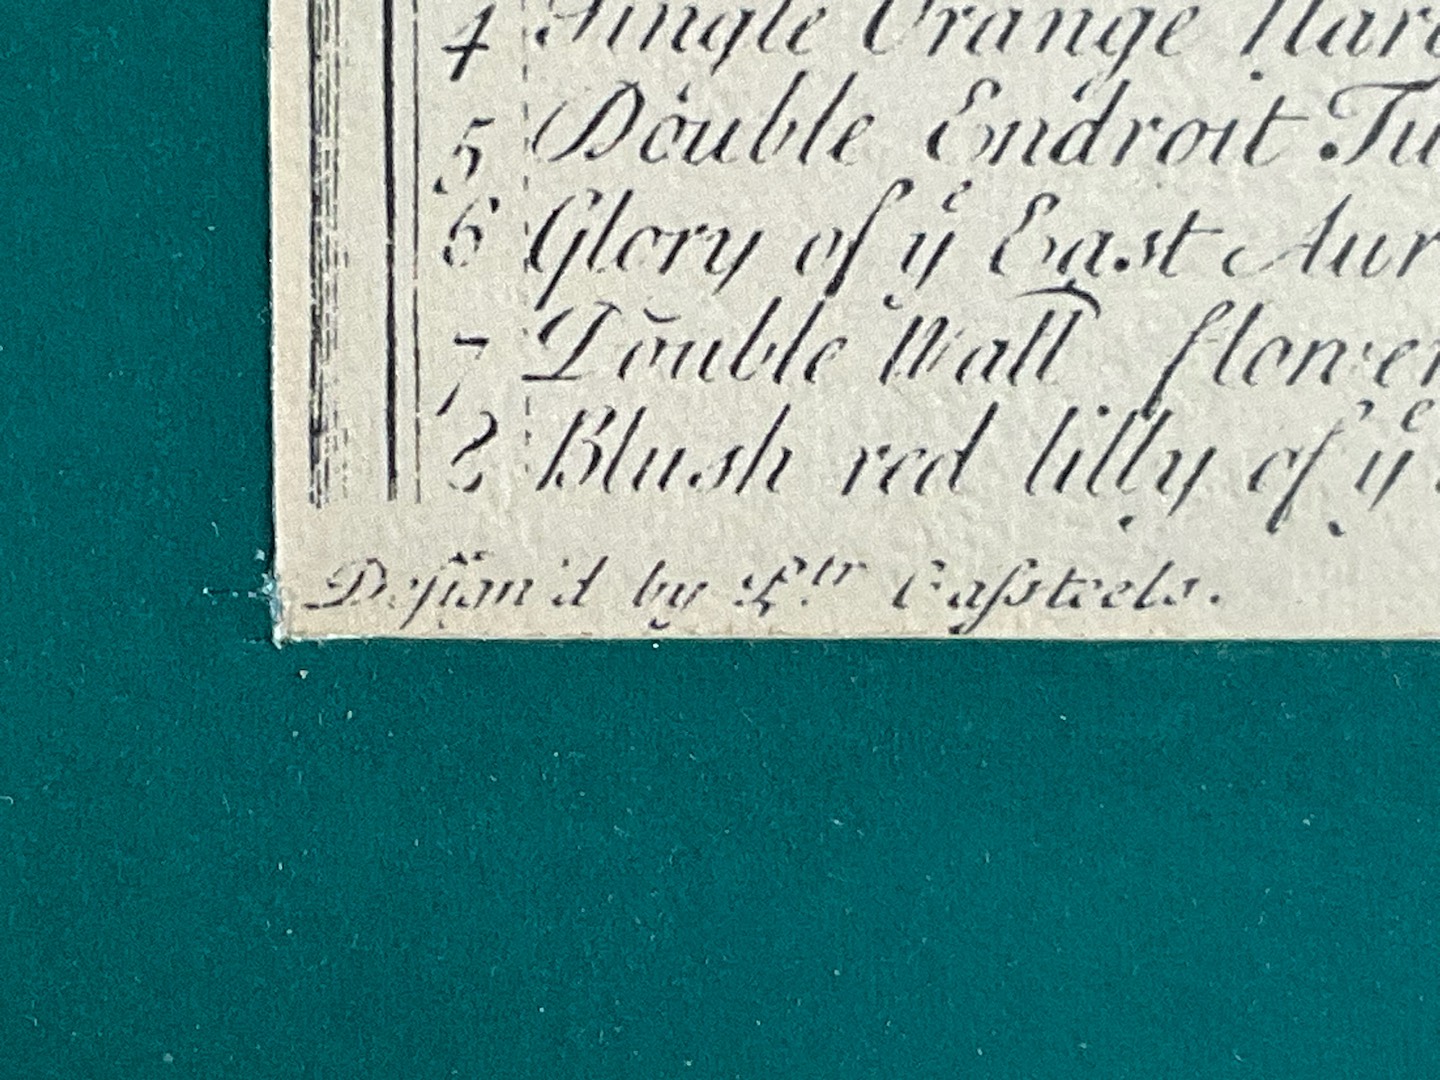 4 Single Orange Nar
5 Double Endroit Tu
6 Glory of yᵉ East Aur
7 Double Wall flower
8 Blush red lilly of yᵉ
Deſign'd by Pᵗʳ Caſsteels.